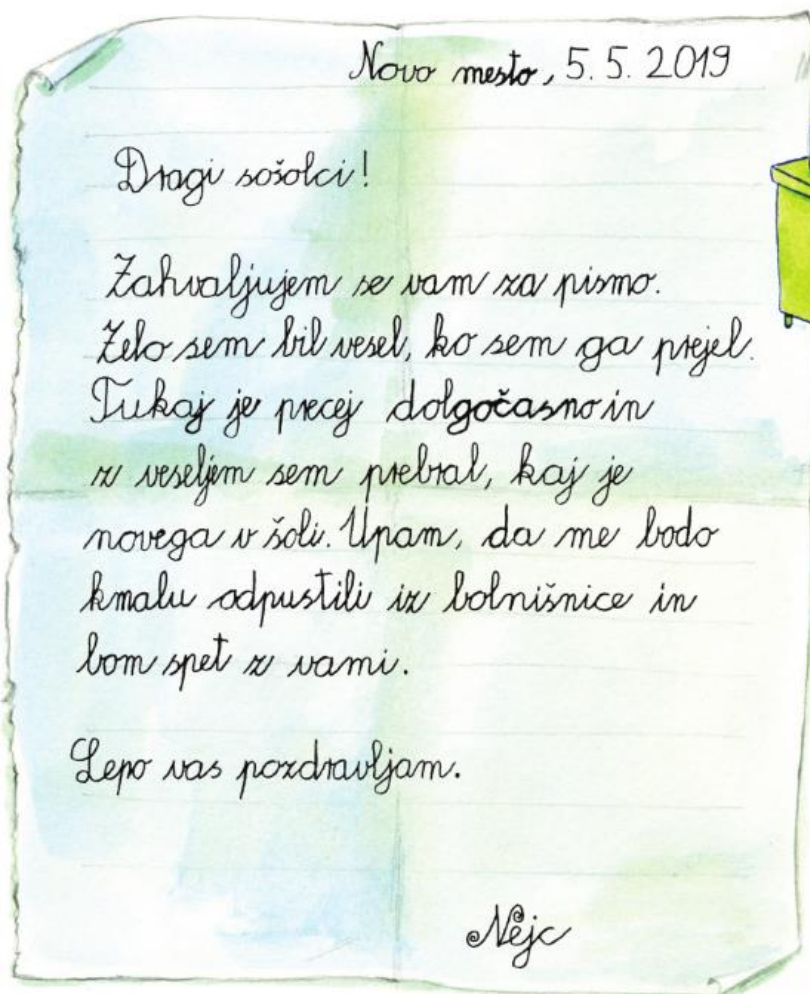 Novo mesto, 5. 5. 2019
Dragi sošolci!
Zahvaljujem se vam za pismo.
Zelo sem bil vesel, ko sem ga prejel.
Tukaj je precej dolgočasno in
z veseljem sem prebral, kaj je
novega v šoli. Upam, da me bodo
kmalu odpustili iz bolnišnice in
bom spet z vami.
Lepo vas pozdravljam.
Nejc